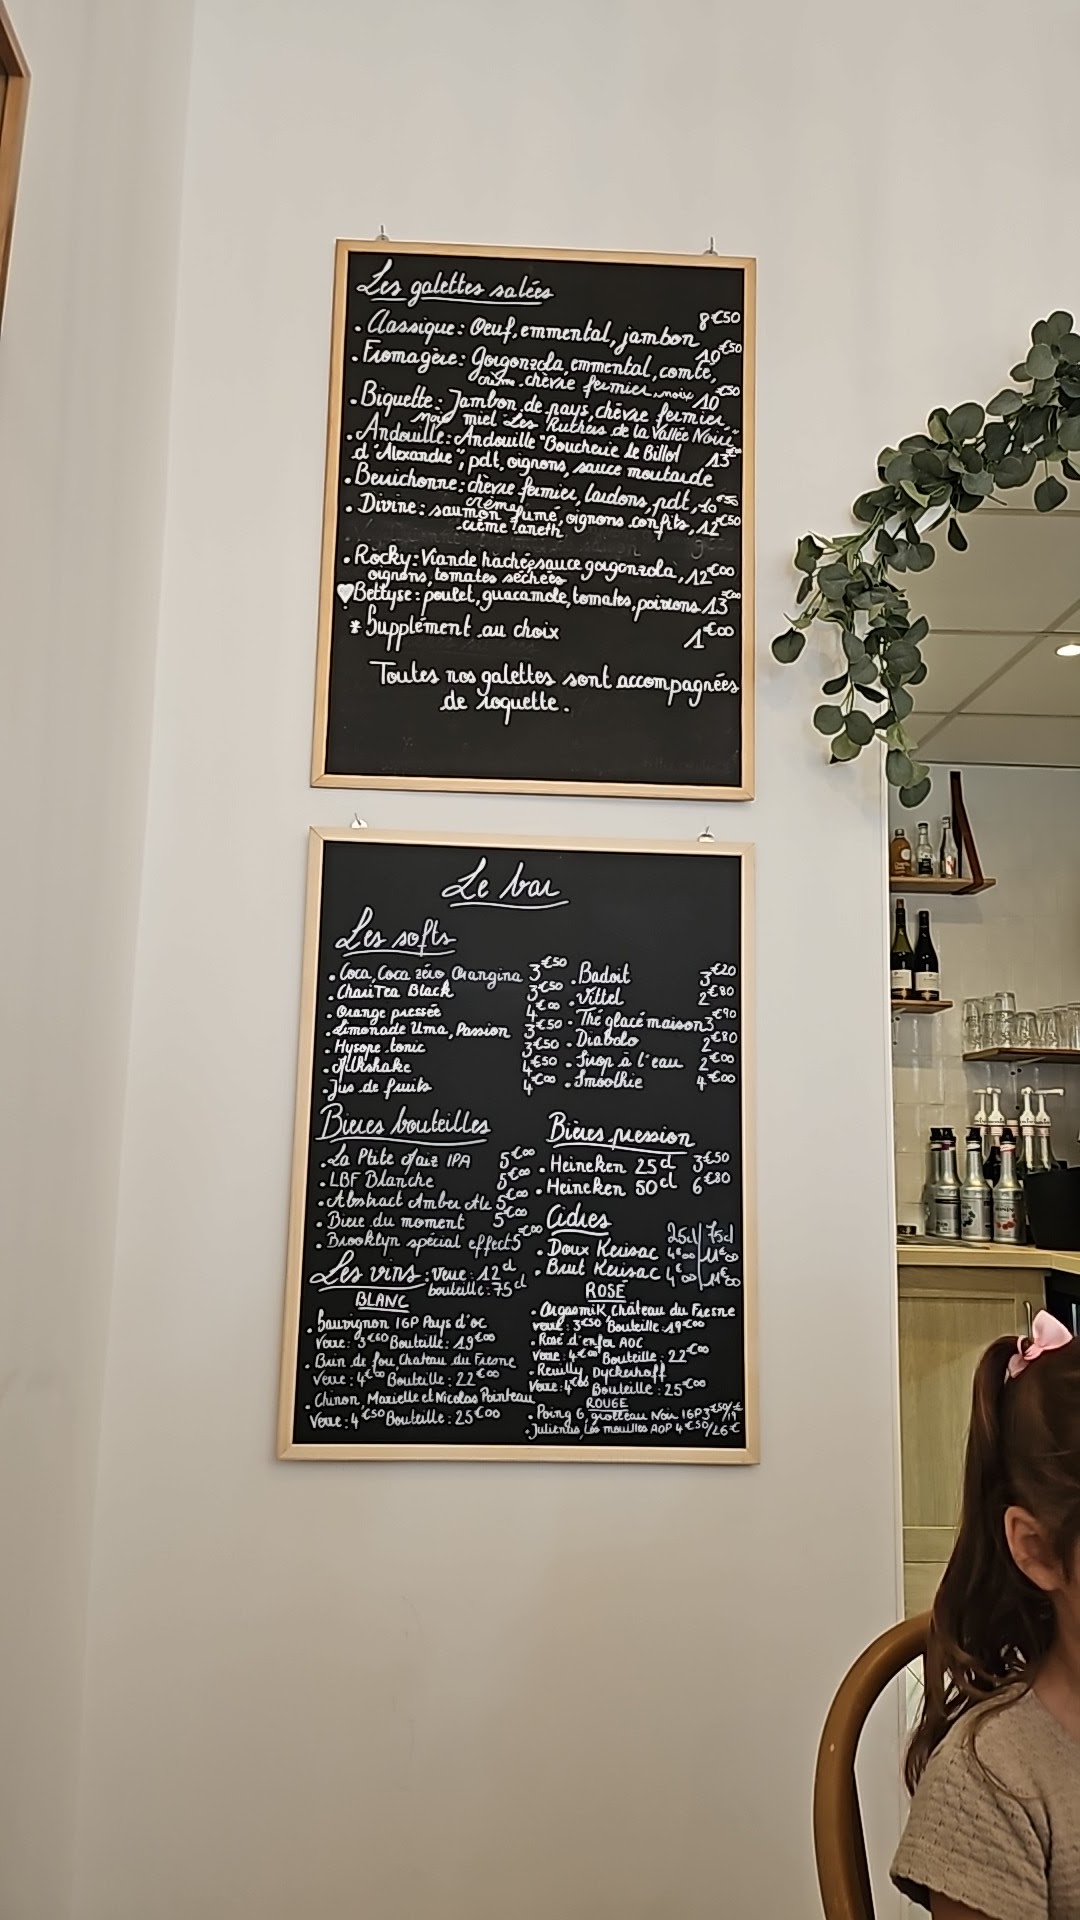 Les galettes salées
. Classique : Oeuf, emmental, jambon 8€50
. Fromagère : Gorgonzola, emmental, comté, 10€50
crème, chèvre fermier, noix
. Biquette : Jambon de pays, chèvre fermier, 10€50
noix miel "Les Ruchers de la Vallée Noire"
. Andouille : Andouille "Boucherie le Billot
d'Alexandre", pdt, oignons, sauce moutarde 13€00
. Berrichonne : chèvre fermier, lardons, pdt, 10€50
crème
. Divine : saumon fumé, oignons confits, 12€50
crème aneth
. Rocky : Viande hachée, sauce gorgonzola, 12€00
oignons, tomates séchées
♥ Bettyse : poulet, guacamole, tomates, poivrons 13€00
* Supplément au choix 1€00
Toutes nos galettes sont accompagnées
de roquette.
Le bar
Les softs
. Coca, Coca zéro, Orangina 3€50
. ChariTea Black 3€50
. Orange pressée 4€00
. Limonade Uma, Passion 3€50
. Hysope tonic 3€50
. Milkshake 4€50
. Jus de fruits 4€00
. Badoit 3€20
. Vittel 2€80
. Thé glacé maison 3€90
. Diabolo 2€80
. Sirop à l'eau 2€00
. Smoothie 4€00
Bieres bouteilles
. La Ptite Maiz IPA 5€00
. LBF Blanche 5€00
. Abstract Amber Ale 5€00
. Biere du moment 5€00
. Brooklyn spécial effect 5€00
Bières pression
. Heineken 25cl 3€50
. Heineken 50cl 6€80
Cidres 25cl/75cl
. Doux Kerisac 4€00/11€00
. Brut Kerisac 4€00/11€00
Les vins : verre : 12cl
bouteille : 75cl
BLANC
. Sauvignon IGP Pays d'oc
Verre : 3€60 Bouteille : 19€00
. Brin de fou, Chateau du Fresne
Verre : 4€00 Bouteille : 22€00
. Chinon, Marielle et Nicolas Pointeau
Verre : 4€50 Bouteille : 25€00
ROSÉ
. OrgasmiK, Château du Fresne
verre : 3€50 Bouteille : 19€00
. Rosé d'enfer AOC
Verre : 4€00 Bouteille : 22€00
. Reuilly, Dyckerhoff
Verre : 4€00 Bouteille : 25€00
ROUGE
. Poing G, grolleau Noir IGP 3€50/19€
. Julienas, Les mouilles AOP 4€50/26€